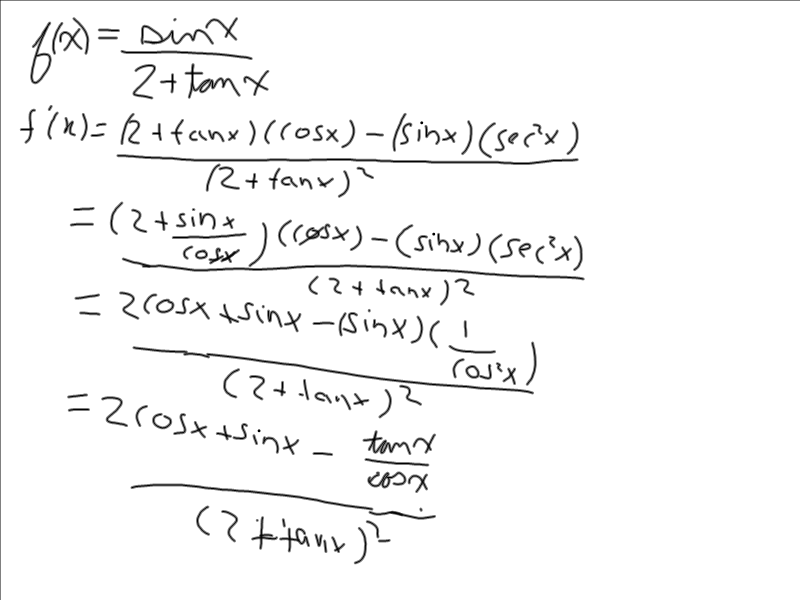 f(x) = sinx / (2+tanx)
f'(x) = (2+tanx)(cosx) - (sinx)(sec²x) / (2+tanx)²
= (2+ sinx/cosx)(cosx) - (sinx)(sec²x) / (2+tanx)²
= 2cosx+sinx - (sinx)(1/cos²x) / (2+tanx)²
= 2cosx+sinx - tanx/cosx / (2+tanx)²